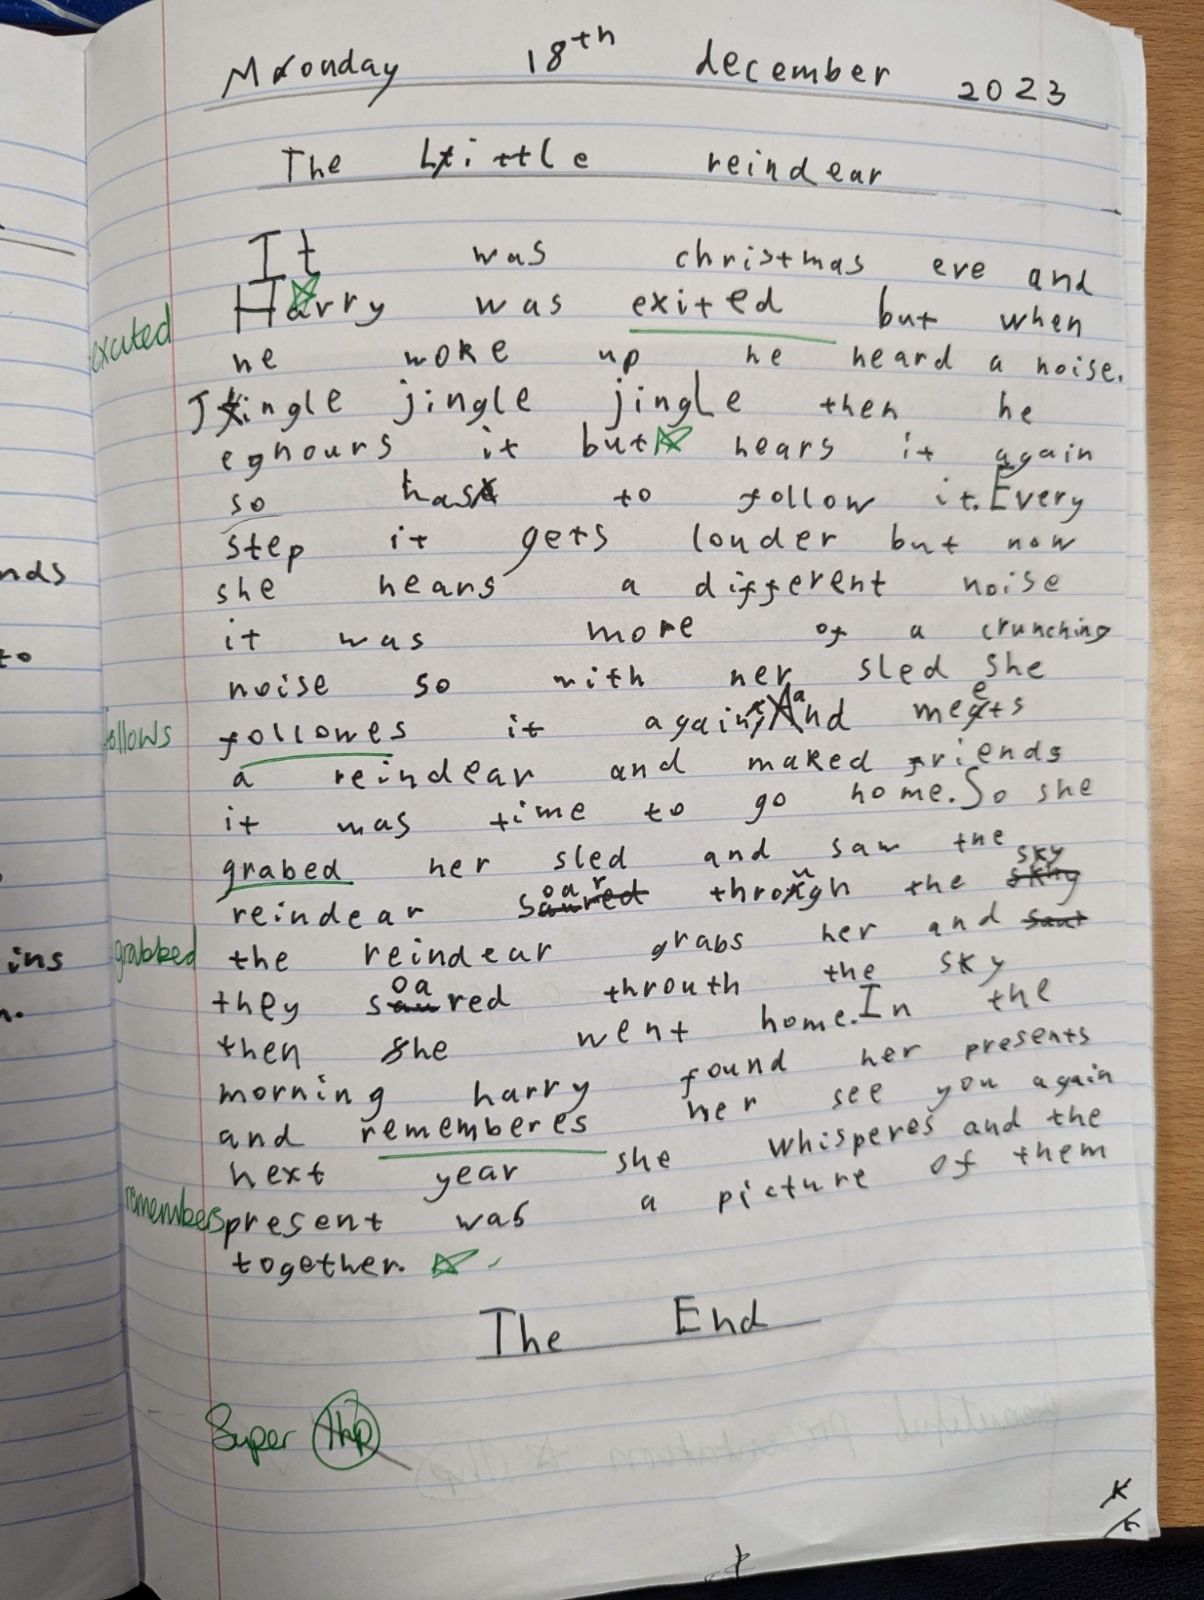 Monday 18th december 2023
The Little reindear
It was christmas eve and
Harry was exited but when
excited
he woke up he heard a noise.
Jingle jingle jingle then he
eghours it but hears it again
so has to follow it. Every
step it gets louder but now
she hears a different noise
nds
it was more of a crunching
to
noise so with her sled she
follows
followes it again, And meets
a reindear and maked friends
it was time to go home. So she
grabed her sled and saw the
reindear soar through the sky
ins
grabbed
the reindear grabs her and saut
they soared throuth the sky
then she went home. In the
morning harry found her presents
and rememberes her see you again
next year she whisperes and the
remembers
present was a picture of them
together.
The End
Super 1hp